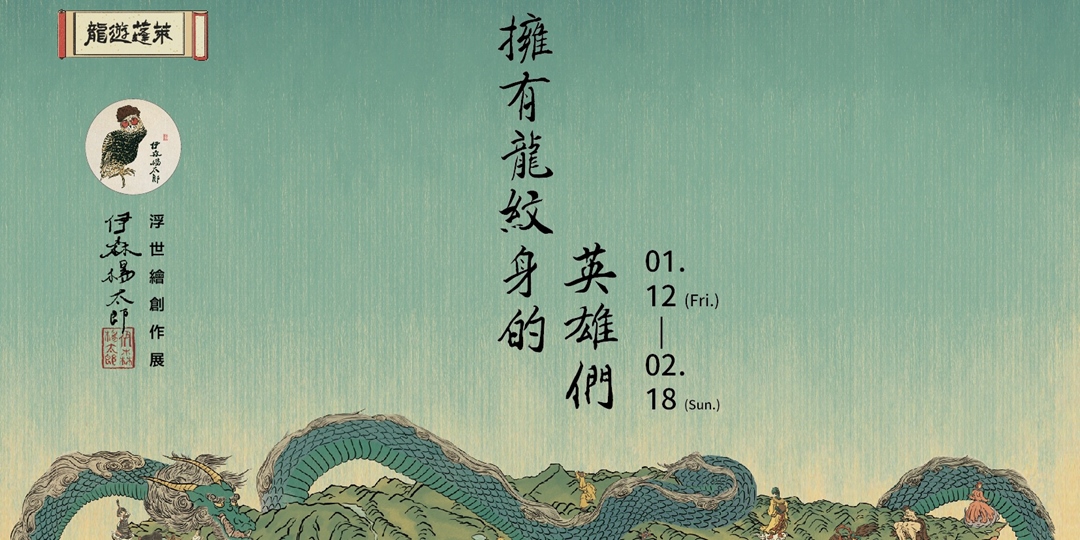 龍遊蓬萊
甘森楊太郎
伊森楊太郎
浮世繪創作展
伊森
楊太郎
擁有龍紋身的
英雄們
01.
12 (Fri.)
|
02.
18 (Sun.)